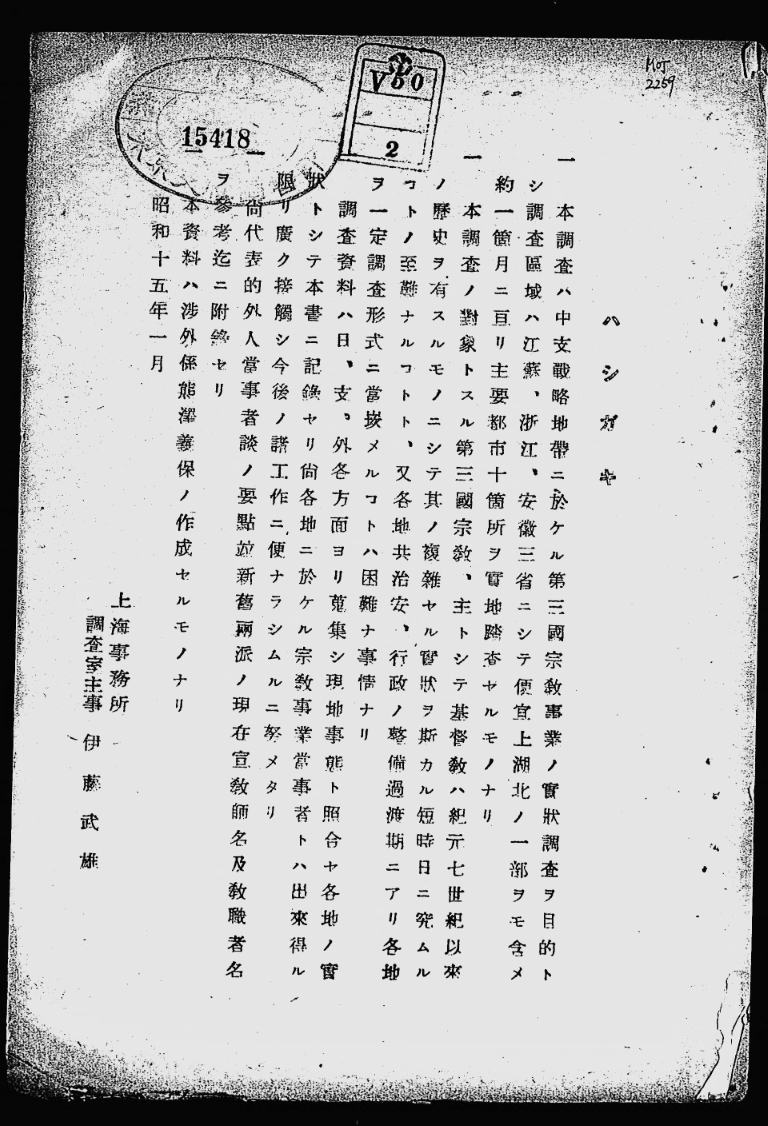 ハシガキ
一　本調査ハ中支戰略地帶ニ於ケル第三國宗敎事業ノ實狀調査ヲ目的ト
シ調査區域ハ江蘇、浙江、安徽三省ニシテ便宜上湖北ノ一部ヲモ含メ
約一箇月ニ亘リ主要都市十箇所ヲ實地踏査セルモノナリ
一　本調査ノ對象トスル第三國宗敎、主トシテ基督敎ハ紀元七世紀以來
ノ歷史ヲ有スルモノニシテ其ノ複雜セル實狀ヲ斯カル短時日ニ究ムル
コトノ至難ナルコトト、又各地共治安、行政ノ整備過渡期ニアリ各地
ヲ一定調査形式ニ當嵌メルコトハ困難ナ事情ナリ
調査資料ハ日、支、外各方面ヨリ蒐集シ現地事態ト照合セ各地ノ實
狀トシテ本書ニ記錄セリ尙各地ニ於ケル宗敎事業當事者トハ出來得ル
限リ廣ク接觸シ今後ノ諸工作ニ便ナラシムルニ努メタリ
尙代表的外人當事者談ノ要點竝新舊兩派ノ現在宣敎師名及敎職者名
ヲ參考迄ニ附錄セリ
本資料ハ涉外係熊澤義保ノ作成セルモノナリ
昭和十五年一月
上海事務所
調査室主事　伊藤武雄
15418
2
MOJ
2259